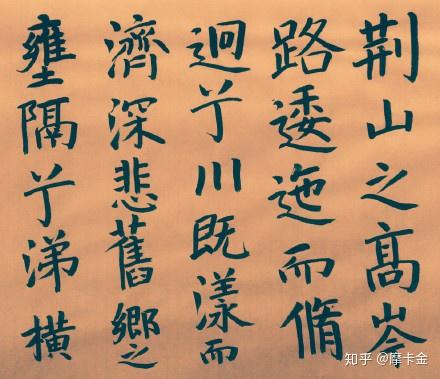 荆山之髙岑
路逶迤而脩
迥兮川既漾而
濟深悲舊鄉之
壅隔兮涕橫
知乎 @摩卡金